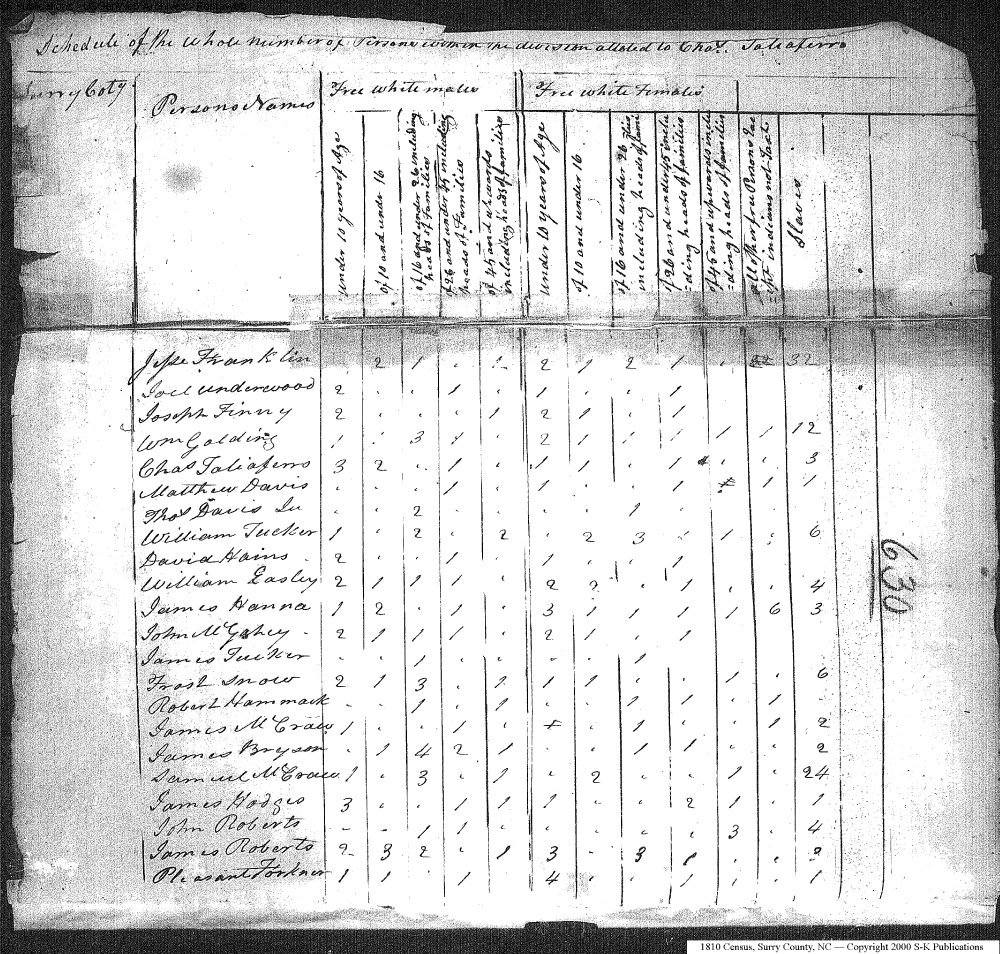 Schedule of the whole number of Persons within the division alloted to Chas. Taliaferro
Surry Coty.
Persons Names
Free white males
Free white Females
under 10 years of Age
of 10 and under 16
of 16 and under 26 including heads of Families
of 26 and under 45 including heads of Families
of 45 and upwards including heads of families
under 10 years of Age
of 10 and under 16
of 16 and under 26 including heads of fami
of 26 and under 45 inclu=ding heads of families
of 45 and upwards inclu=ding heads of families
all other free Persons Exc=ept indians not taxt
Slaves
Jesse Franklin 2 1 . 1 2 1 2 1 . 32
Joel Underwood 2 . . 1 . 1 . . 1
Joseph Finny 2 . . . 1 2 1 . 1
Wm Golding 1 . 3 1 . 2 1 1 1 1 1 12
Chas Taliaferro 3 2 . 1 . 1 1 . 1 . . 3
Matthew Davis . . . 1 . 1 . . 1 1 1
Thos Davis Ju . . 2 . . . . 1
William Tucker 1 . 2 . 2 . 2 3 . 1 . 6
David Hains 2 . . 1 . 1 . . 1
William Easley 2 1 1 1 . 2 2 . 1 . . 4
James Hanna 1 2 . 1 . 3 1 1 1 1 6 3
John McGehey 2 1 1 1 . 2 1 . 1
James Tucker . . 1 . . . . 1
Frost Snow 2 1 3 . 1 1 1 . . 1 . 6
Robert Hammack . . 1 . 1 . . 1 1 . 1
James McCraw 1 . . 1 . . 1 . . 1 2
James Bryson . 1 4 2 1 . . 1 1 . . 2
Samuel McCraw 1 . 3 . 1 . 2 . . 1 . 24
James Hodges 3 . . 1 1 1 . . 2 1 . 1
John Roberts - - 1 1 . . . . . 3 . 4
James Roberts 2 3 2 . 1 3 . 3 1 . . 2
Pleasant Forkner 1 1 . 1 . 4 . . 1 . . 1
630
1810 Census, Surry County, NC — Copyright 2000 S-K Publications